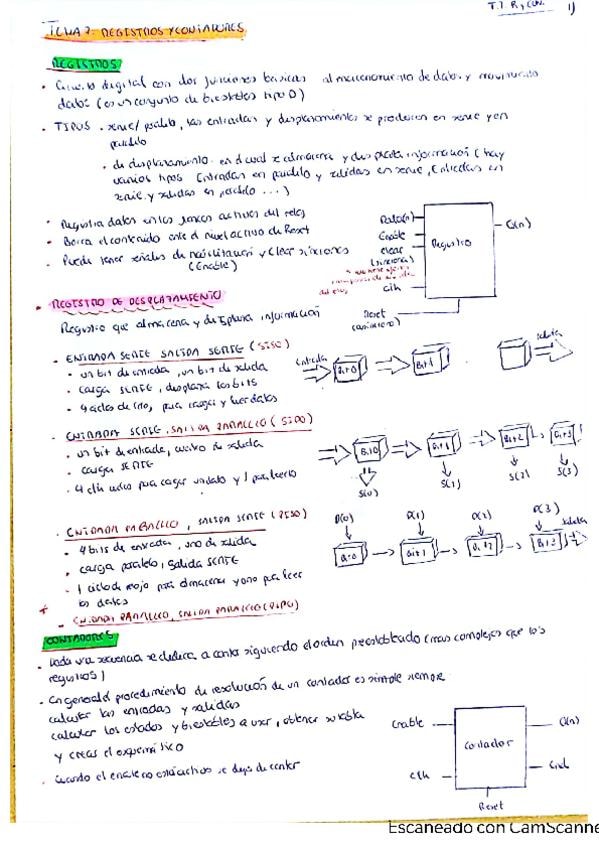 T.7 R. y CON. 1)
TEMA 7: REGISTROS Y CONTADORES
REGISTROS
· Circuito digital con dos funciones basicas almacenamiento de datos y movimiento
datos (es un conjunto de biestables tipo D)
· TIPOS · serie/paralelo, las entradas y desplazamientos se producen en serie y en
paralelo
· de desplazamiento. en el cual se almacena y desplaza información (hay
varios tipos Entradas en paralelo y salidas en serie, Entradas en
serie y salidas en paralelo ...)
· Registra datos en los flancos activos del reloj
· Borra el contenido ante el nivel activo de Reset
· Puede tener señales de habilitación y Clear síncronos
(Enable)
Data(n)
Enable
clear
(síncrono)
clk
Reset
(asíncrono)
Registro
Q(n)
· REGISTRO DE DESPLAZAMIENTO
Registro que almacena y desplaza información
· ENTRADA SERIE SALIDA SERIE (SISO)
· un bit de entrada, un bit de salida
· carga SERIE, desplaza los bits
· 4 ciclos de reloj, para cargar y leer datos
Entrada
Bi+0
Bi+1
salida
· ENTRADA SERIE, SALIDA PARALELO (SIPO)
· un bit de entrada, cuatro de salida
· carga SERIE
· 4 clk ciclos para cargar un dato y 1 para leerlo
Bi+0
Bi+1
Bi+2
Bi+3
S(0)
S(1)
S(2)
S(3)
· ENTRADA PARALELO, SALIDA SERIE (PISO)
· 4 bits de entrada, uno de salida
· carga paralelo, salida SERIE
· 1 ciclo de reloj para almacenar y uno para leer
los datos
D(0)
D(1)
D(2)
D(3)
salida
Bi+0
Bi+1
Bi+2
Bi+3
· ENTRADA PARALELO, SALIDA PARALELO (PIPO)
CONTADORES
· Dada una secuencia se dedica a contar siguiendo el orden preestablecido (mas complejos que los
registros)
· En general el procedimiento de resolución de un contador es simple siempre
calcular las entradas y salidas
calcular los estados y biestables a usar, obtener su tabla
y crear el esquemático
· Cuando el enable no está activo se deja de contar
Enable
clk
contador
Q(n)
End
Reset
Escaneado con CamScanne